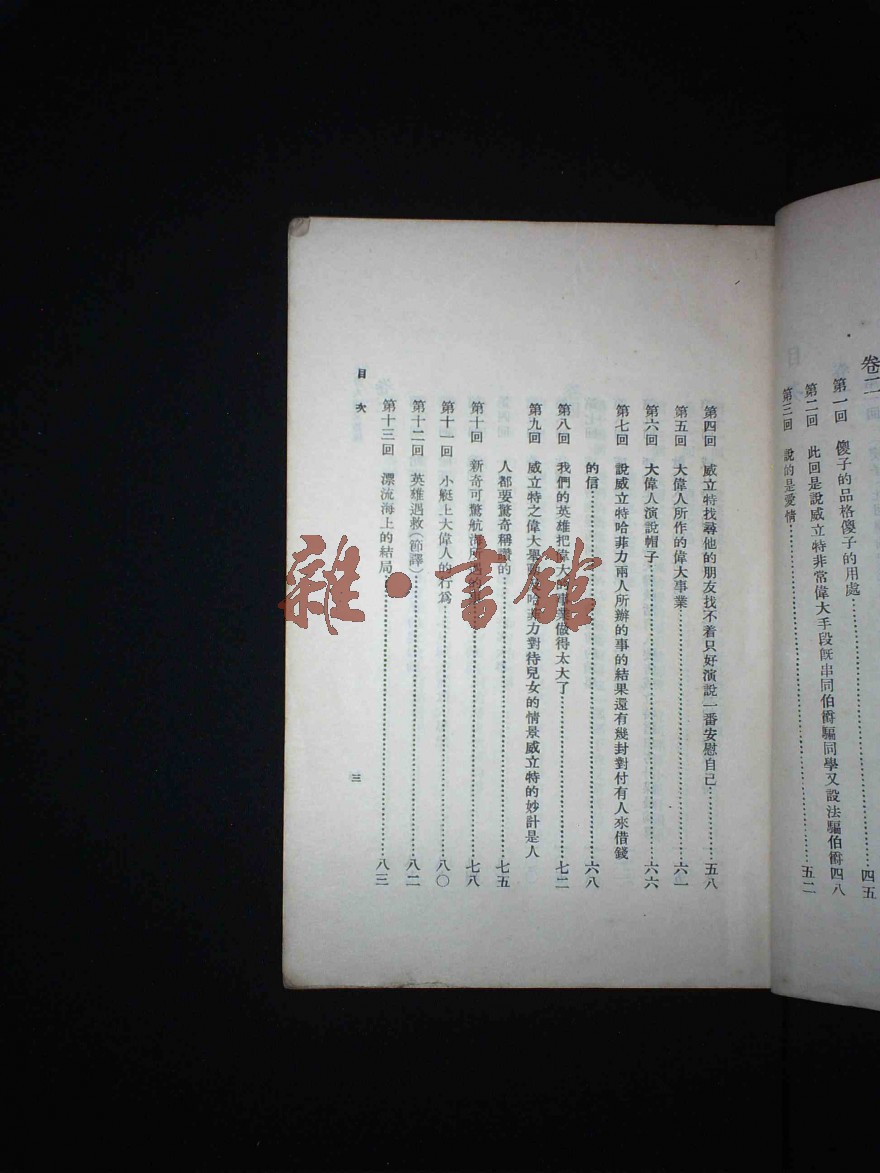 卷二
第一回　傻子的品格傻子的用處……四五
第二回　此回是說威立特非常偉大手段既串同伯爵騙同學又設法騙伯爵四八
第三回　說的是愛情……五二
第四回　威立特找尋他的朋友找不着只好演說一番安慰自己……五八
第五回　大偉人所作的偉大事業……六一
第六回　大偉人演說帽子……六六
第七回　說威立特哈菲力兩人所辦的事的結果還有幾封對付有人來借錢
的信……六八
第八回　我們的英雄把偉大 事業做得太大了……七二
第九回　威立特之偉大舉 哈菲力對待兒女的情景威立特的妙計是人
人都要驚奇稱讚的……七五
第十回　新奇可驚航海所遇的 ……七八
第十一回　小艇上大偉人的行爲……八〇
第十二回　英雄遇救(節譯)……八二
第十三回　漂流海上的結局……八三
目次
三
雜·書館